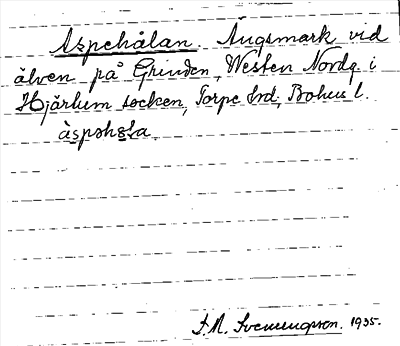 Aspehålan. Ängsmark vid
älven på Grinden, Westen Nordg. i
Hjärtum socken, Torpe hrd, Bohus l.
àspohɷla
S. M. Svenungsson. 1935.